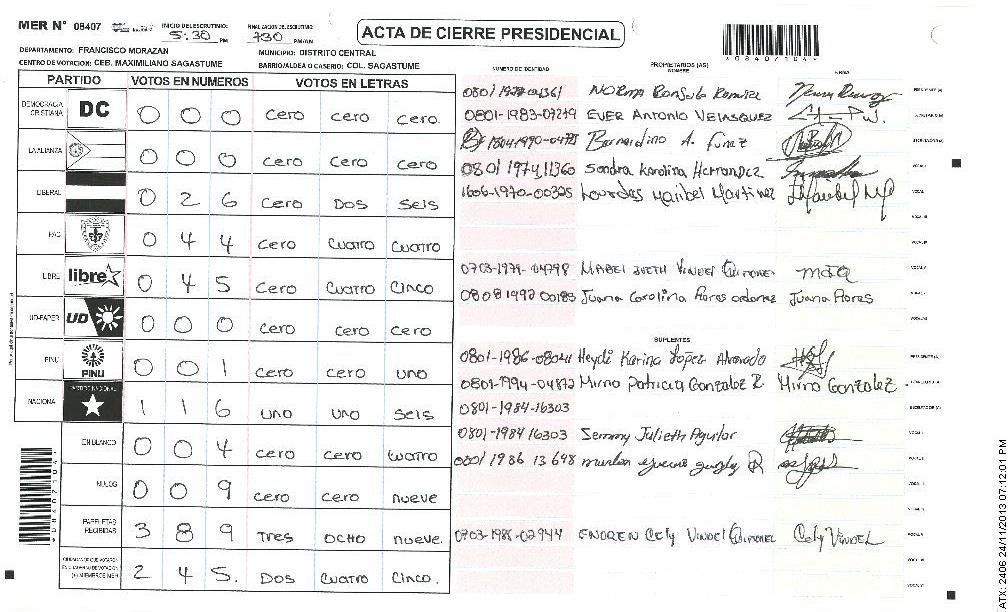 MER N° 08407 INICIO DEL ESCRUTINIO: 5:30 PM FINALIZACION DEL ESCRUTINIO: 730 PM/AM
ACTA DE CIERRE PRESIDENCIAL
*08407104*
DEPARTAMENTO: FRANCISCO MORAZAN MUNICIPIO: DISTRITO CENTRAL
CENTRO DE VOTACION: CEB. MAXIMILIANO SAGASTUME BARRIO/ALDEA O CASERIO: COL. SAGASTUME
PARTIDO VOTOS EN NUMEROS VOTOS EN LETRAS
DEMOCRACIA CRISTIANA DC 0 0 0 cero cero cero.
LA ALIANZA 0 0 0 cero cero cero
LIBERAL 0 2 6 cero Dos seis
PAC 0 4 4 cero cuatro cuatro
LIBRE libre 0 4 5 cero cuatro cinco
UD-FAPER UD 0 0 0 cero cero cero
PINU PINU 0 0 1 cero cero uno
NACIONAL PARTIDO NACIONAL 1 1 6 uno uno seis
EN BLANCO 0 0 4 cero cero cuatro
NULOS 0 0 9 cero cero nueve
PAPELETAS RECIBIDAS 3 8 9 Tres ocho nueve.
2 4 5. Dos cuatro cinco.
NUMERO DE IDENTIDAD PROPIETARIOS (AS) NOMBRE FIRMA
NORMA Consuelo Ramirez
0801-1983-07219 EVER ANTONIO VELASQUEZ
18041990-04775 Bernardino A. Funez
0801 1974,11360 Sandra Karolina Hernandez
1606-1970-00325 Lourdes Maribel Martinez
0703-1979-04798 MABEL IVETH VINDEL
0808 1992 00183 Juana Carolina Flores ordonez Juana Flores
SUPLENTES
0801-1986-08044 Heydi Karina Lopez Alvarado
0801-1994-04872 Mirna Patricia Gonzalez R. Mirna Gonzalez
0801-1984-16303
0801-1984 16303 Semmy Julieth Aguilar
0801 1986 13698
0703-1986-02944 Cely VINDEL Cely VINDEL
*08407104*
ATX: 2406 24/11/2013 07:12:01 PM